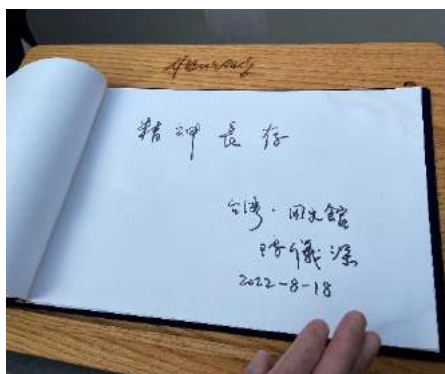 精神長存
台湾·国史館
陳儀深
2022-8-18